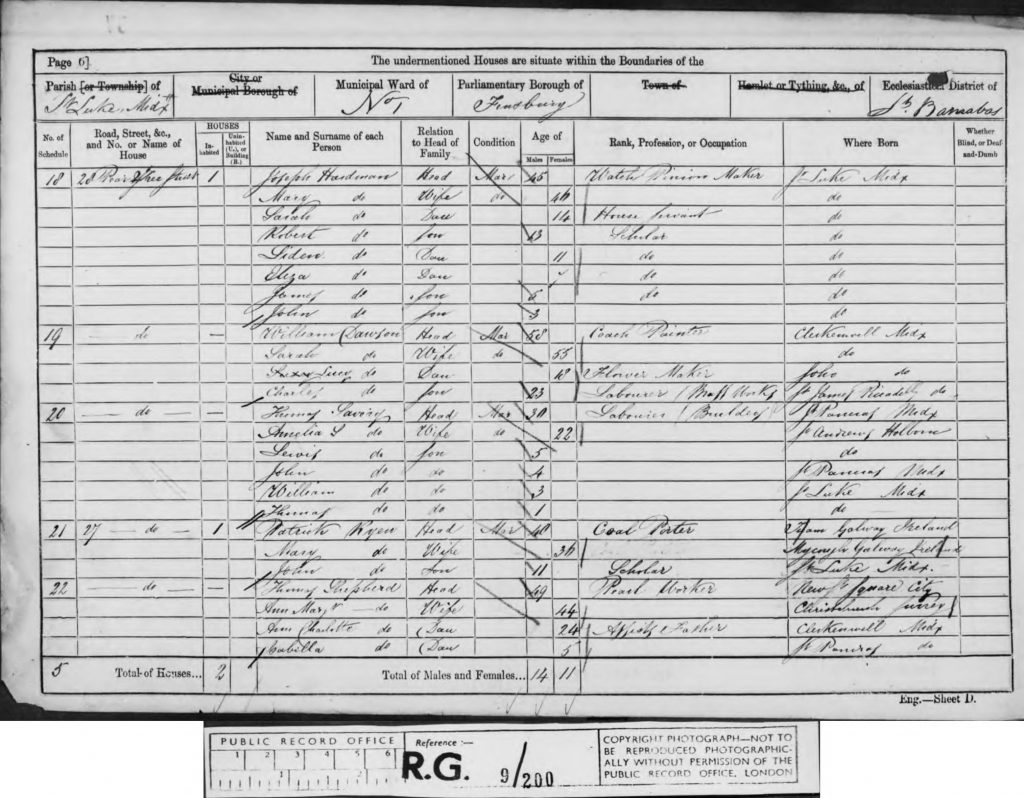 Page 6]
The undermentioned Houses are situate within the Boundaries of the
Parish [or Township] of
City or Municipal Borough of
Municipal Ward of
Parliamentary Borough of
Town of
Hamlet or Tything, &c., of
Ecclesiastical District of
St Luke Midx
No 1
Finsbury
St Barnabas
No. of Schedule
Road, Street, &c., and No. or Name of House
HOUSES
Inhabited
Uninhabited (U.), or Building (B.)
Name and Surname of each Person
Relation to Head of Family
Condition
Age of
Males
Females
Rank, Profession, or Occupation
Where Born
Whether Blind, or Deaf-and-Dumb
18 28 Pear Tree Street 1 Joseph Hardman Head Mar 45 Watch Pinion Maker St Luke Midx
Mary do Wife do 46 do
Sarah do Dau 14 House Servant do
Robert do Son 13 Scholar do
do Dau 11 do do
Eliza do Dau do do
James do Son 5 do do
John do Son 3 do
19 — do — William Lawson Head Mar 58 Coach Painter Clerkenwell Midx
Sarah do Wife do 55 do
Lucy do Dau 18 Flower Maker Soho do
Charles do Son 23 Labourer (Brass Works) St James Piccadilly do
20 — do — — Thomas Savory Head Mar 30 Labourer (Builders) St Pancras Midx
Amelia S do Wife do 22 St Andrews Holborn
Lewis do Son 5 do
John do do 4 St Pancras Midx
William do do 3 St Luke Midx
Thomas do do 1 do
21 27 — do — 1 Patrick Ryen Head Mar 48 Coal Porter Galway Ireland
Mary do Wife 36 Galway Ireland
John do Son 11 Scholar St Luke Midx.
22 — do — — Thomas Shepherd Head 49 Pearl Worker New St Square City
Ann Margt — do Wife 44 Surrey
Ann Charlotte do Dau 24 Clerkenwell Midx
Isabella do Dau 5 St Pancras do
5 Total of Houses... 2 Total of Males and Females... 14 11
Eng.—Sheet D.
PUBLIC RECORD OFFICE
1 2 3 4 5 6
Reference :—
R.G. 9/200
COPYRIGHT PHOTOGRAPH—NOT TO
BE REPRODUCED PHOTOGRAPHIC-
ALLY WITHOUT PERMISSION OF THE
PUBLIC RECORD OFFICE, LONDON